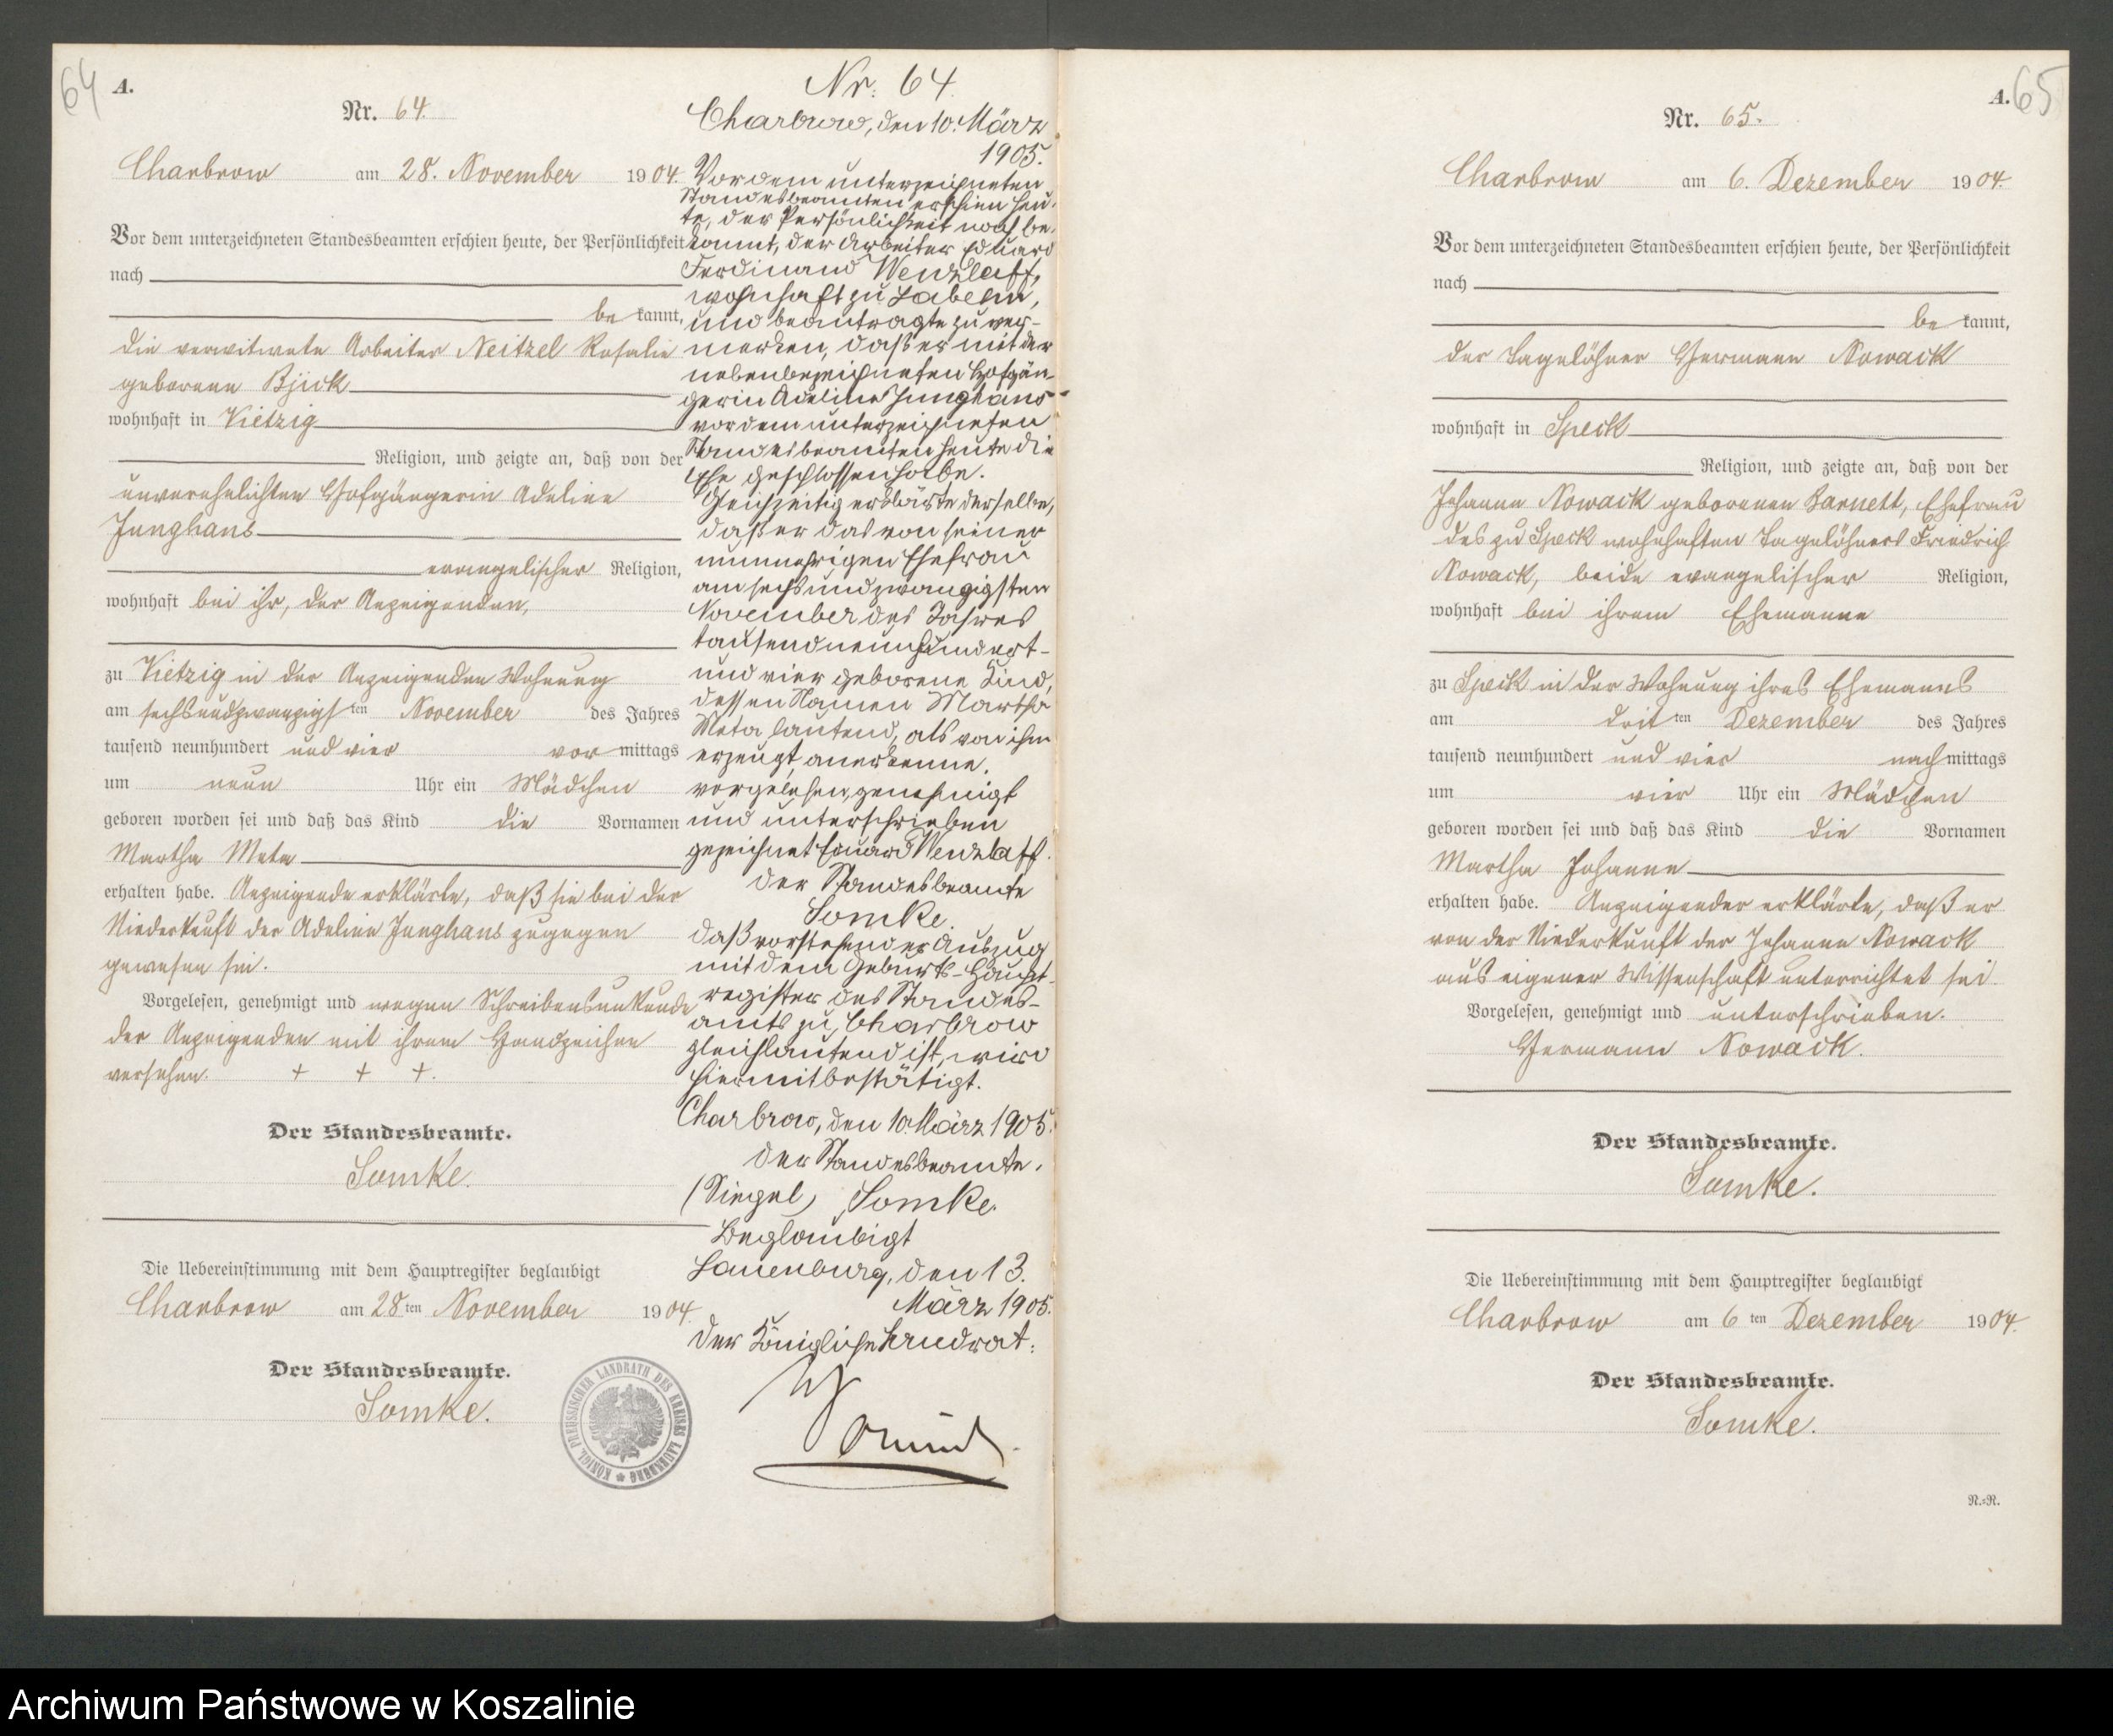 64
A.
Nr. 64.
Charbrow am 28. November 1904.
Vor dem unterzeichneten Standesbeamten erschien heute, der Persönlichkeit
nach
be kannt,
die verwitwete Arbeiter Neitzel Rosalie
geborene Bjick
wohnhaft in Vietzig
Religion, und zeigte an, daß von der
unverehelichten Hofgängerin Adeline
Junghans
evangelischer Religion,
wohnhaft bei ihr, der Anzeigenden,
zu Vietzig in der Anzeigenden Wohnung
am sechsundzwanzigsten November des Jahres
tausend neunhundert und vier vor mittags
um neun Uhr ein Mädchen
geboren worden sei und daß das Kind die Vornamen
Martha Meta
erhalten habe. Anzeigende erklärte, daß sie bei der
Niederkunft der Adeline Junghans zugegen
gewesen sei.
Vorgelesen, genehmigt und wegen Schreibensunkunde
der Anzeigenden mit ihrem Handzeichen
versehen. + + +.
Der Standesbeamte.
Somke.
Die Uebereinstimmung mit dem Hauptregister beglaubigt
Charbrow am 28ten November 1904.
Der Standesbeamte.
Somke.
KÖNIGL. PREUSSISCHER LANDRATH DES KREISES LAUENBURG
Nr. 64.
Charbrow, den 10. März
1905.
Vor dem unterzeichneten
Standesbeamten erschien heu-
te, der Persönlichkeit nach be-
kannt, der Arbeiter Eduard
Ferdinand Wenzlaff,
wohnhaft zu Labehn,
und beantragte zu ver-
merken, daß er mit der
nebenbezeichneten Hofgän-
gerin Adeline Junghans
vor dem unterzeichneten
Standesbeamten heute die
Ehe geschlossen habe.
Gleichzeitig erklärte derselbe,
daß er das von seiner
nunmehrigen Ehefrau
am sechsundzwanzigsten
November des Jahres
tausendneunhundert-
und vier geborene Kind,
dessen Namen Martha
Meta lautend, als von ihm
erzeugt anerkenne.
vorgelesen, genehmigt
und unterschrieben
gezeichnet Eduard Wenzlaff.
Der Standesbeamte
Somke.
Daß vorstehender Auszug
mit dem Geburts-Haupt-
register des Standes-
amts zu Charbrow
gleichlautend ist, wird
hiermit bestätigt.
Charbrow, den 10. März 1905.
Der Standesbeamte.
(Siegel) Somke.
Beglaubigt
Lauenburg, den 13.
März 1905.
Der Königliche Landrat.
A.
65
Nr. 65.
Charbrow am 6. Dezember 1904.
Vor dem unterzeichneten Standesbeamten erschien heute, der Persönlichkeit
nach
be kannt,
der Tagelöhner Hermann Nowack
wohnhaft in Speck
Religion, und zeigte an, daß von der
Johanne Nowack geborenen Barnett, Ehefrau
des zu Speck wohnhaften Tagelöhners Friedrich
Nowack, beide evangelischer Religion,
wohnhaft bei ihrem Ehemanne
zu Speck in der Wohnung ihres Ehemanns
am dritten Dezember des Jahres
tausend neunhundert und vier nach mittags
um vier Uhr ein Mädchen
geboren worden sei und daß das Kind die Vornamen
Martha Johanne
erhalten habe. Anzeigender erklärte, daß er
von der Niederkunft der Johanne Nowack
aus eigener Wissenschaft unterrichtet sei.
Vorgelesen, genehmigt und unterschrieben.
Hermann Nowack.
Der Standesbeamte.
Somke.
Die Uebereinstimmung mit dem Hauptregister beglaubigt
Charbrow am 6ten Dezember 1904.
Der Standesbeamte.
Somke.
N.=N.
Archiwum Państwowe w Koszalinie